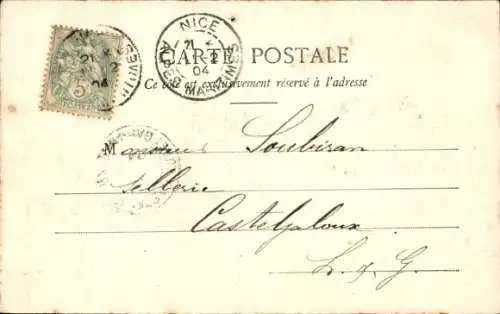 NICE
21 2
04
ALPES MARITIMES
CARTE POSTALE
Ce côté est exclusivement réservé à l'adresse
Monsieur Soubiran
Sellerie
Casteljaloux
L. & G.